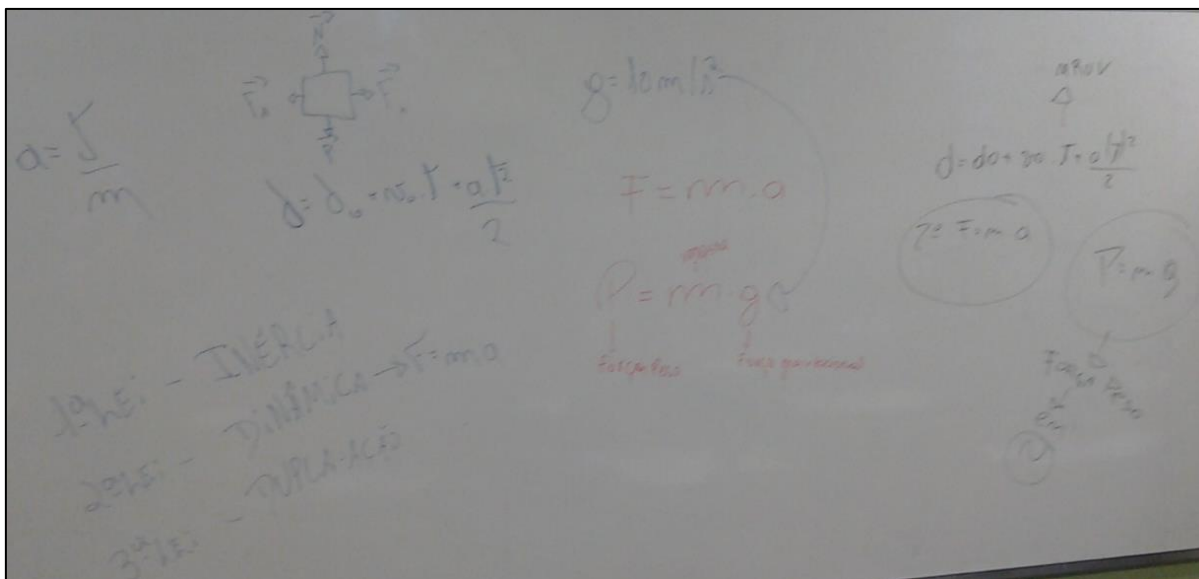 a = F/m
N
F F
P
d = d₀ + v₀.T + aT²/2
1ª LEi - INÉRCIA
2ª LEi - DiNÂMiCA → F = m.a
3ª LEi - DUPLA-AÇÃO
g = 10 m/s²
F = m.a
massa
P = m.g
Força Peso
MRUV
d = d0 + v0.T + a(T)²/2
2ª F = m.a
P = m.g
Força Peso
em